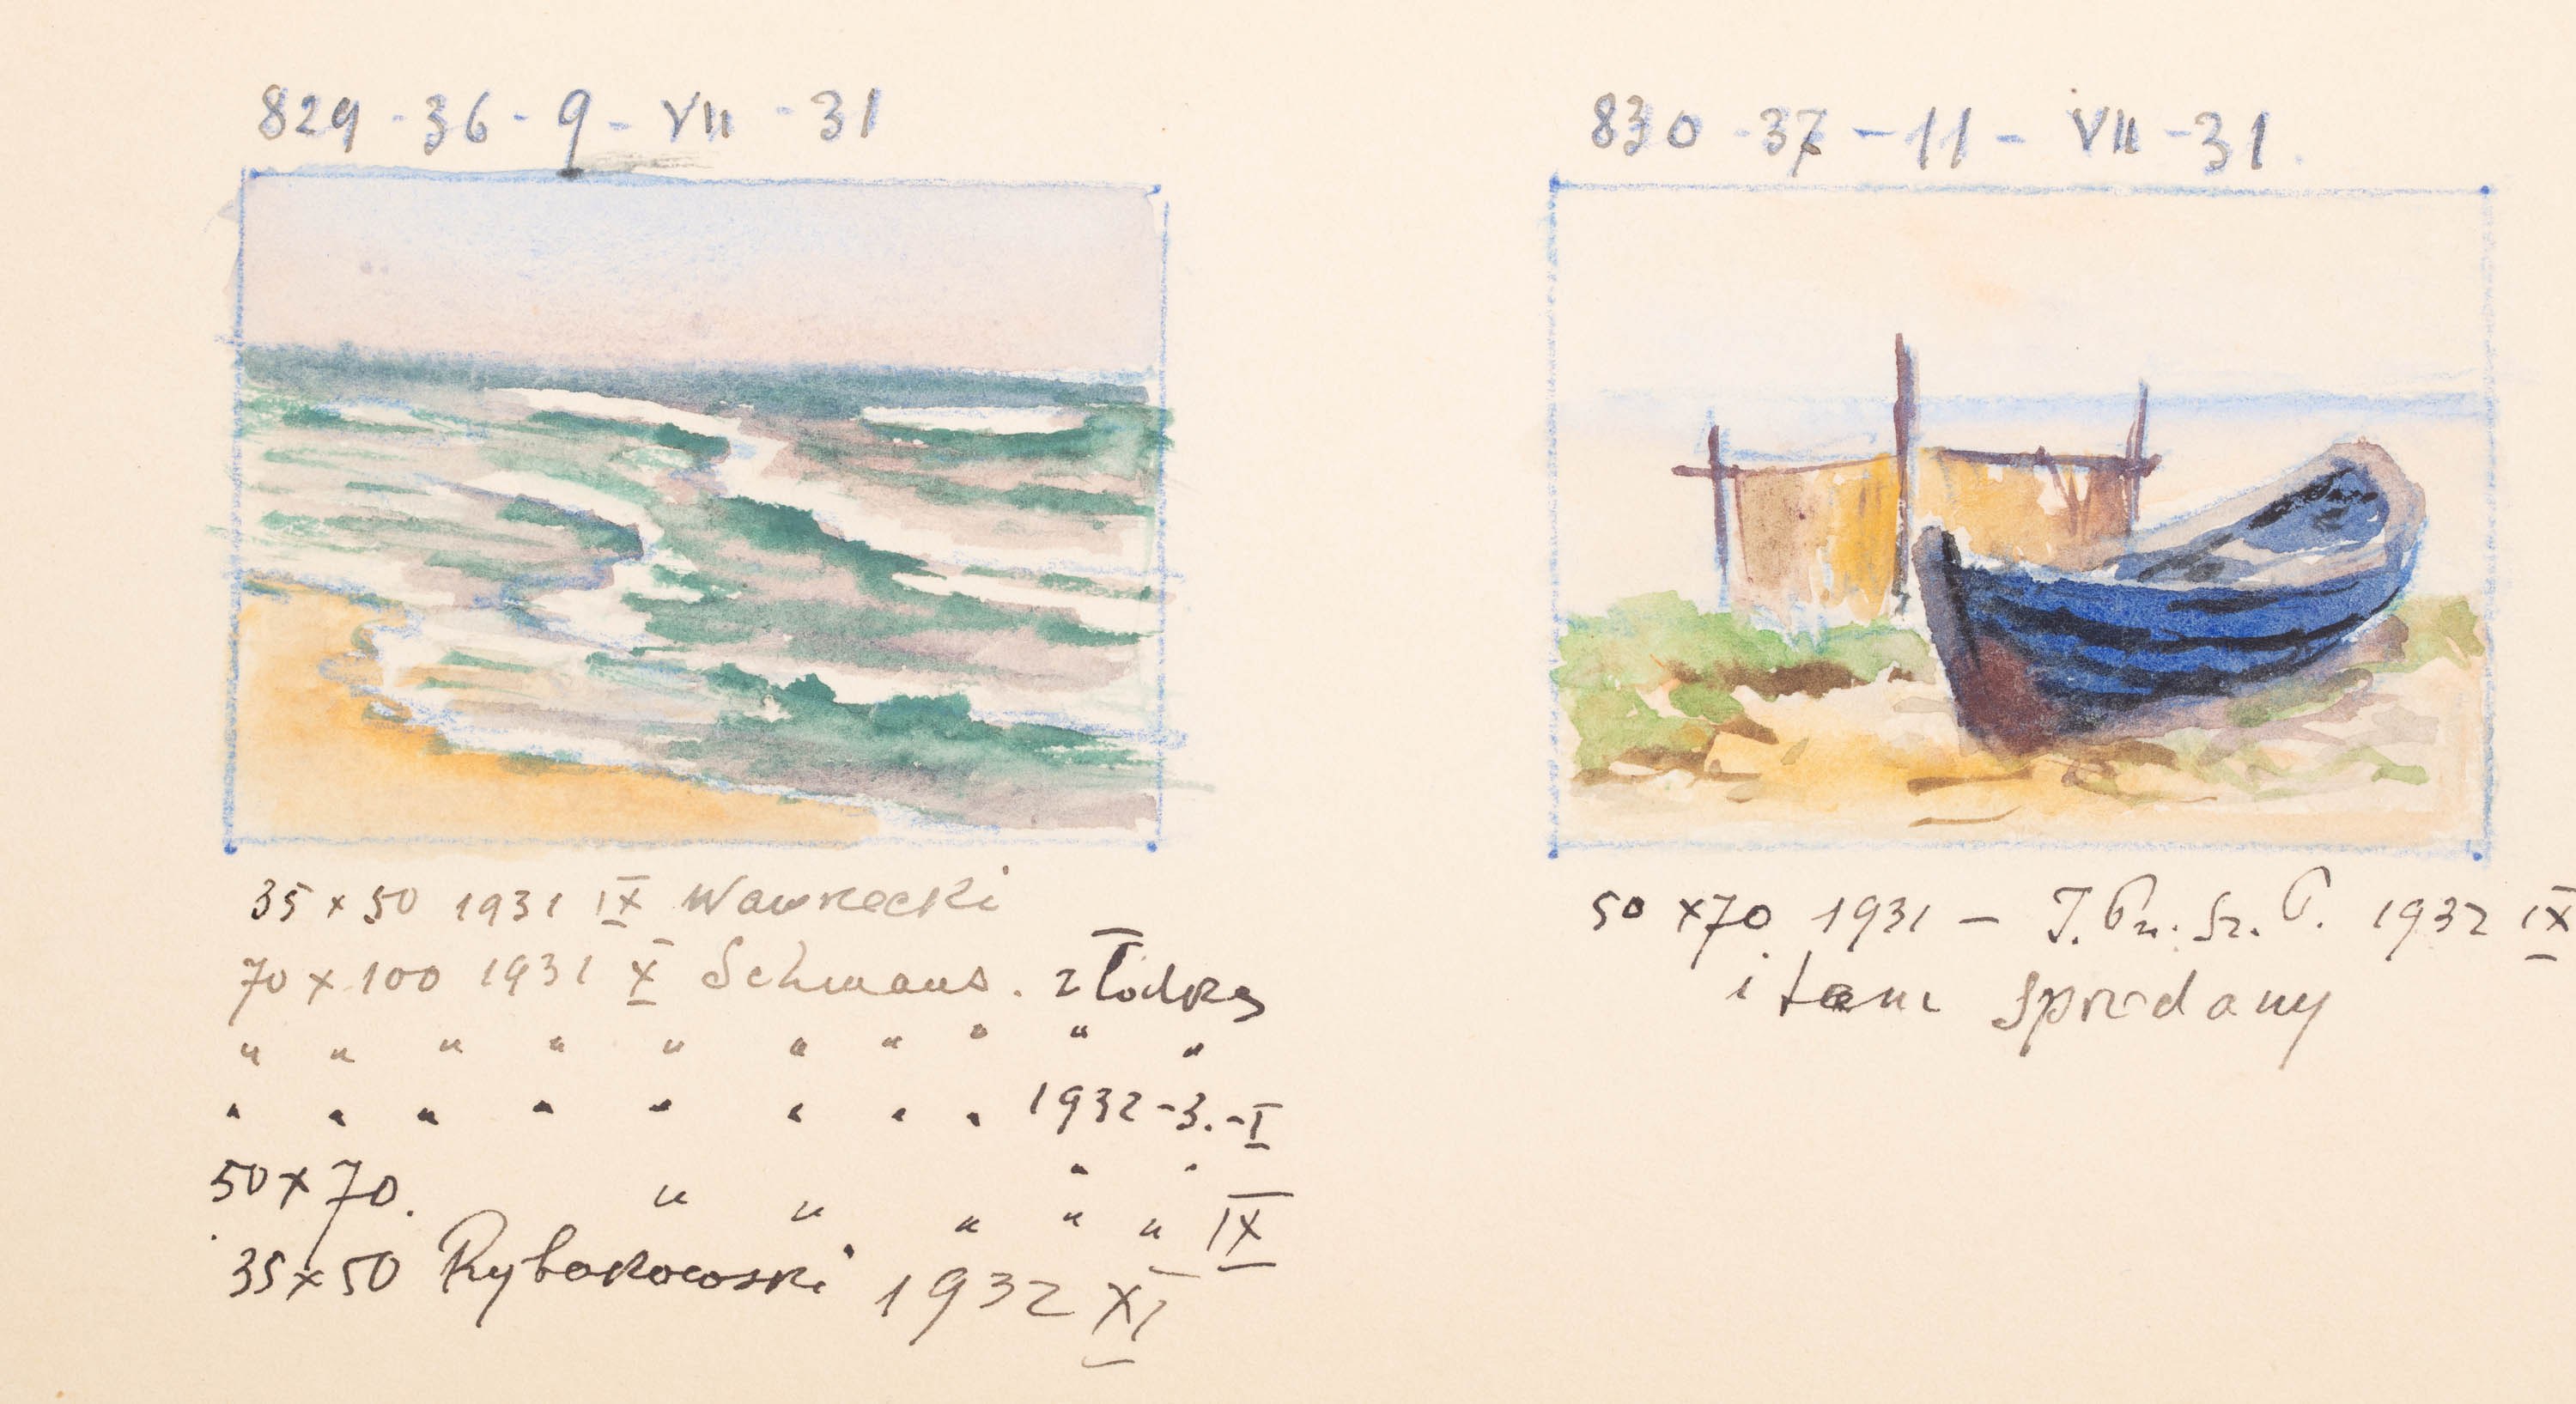 829 - 36 - 9 - VII - 31
35 x 50 1931 IX Wawrzecki
70 x 100 1931 X Schmaus. z Łodzi
" " " " " " " " " "
" " " " " " " " 1932 - 3. - I
50 x 70. " " " " " IX
35 x 50 Rybakowski 1932 XI
830 - 37 - 11 - VII - 31.
50 x 70 1931 - T. Pr. Sz. P. 1932 IX
i tam sprzedany